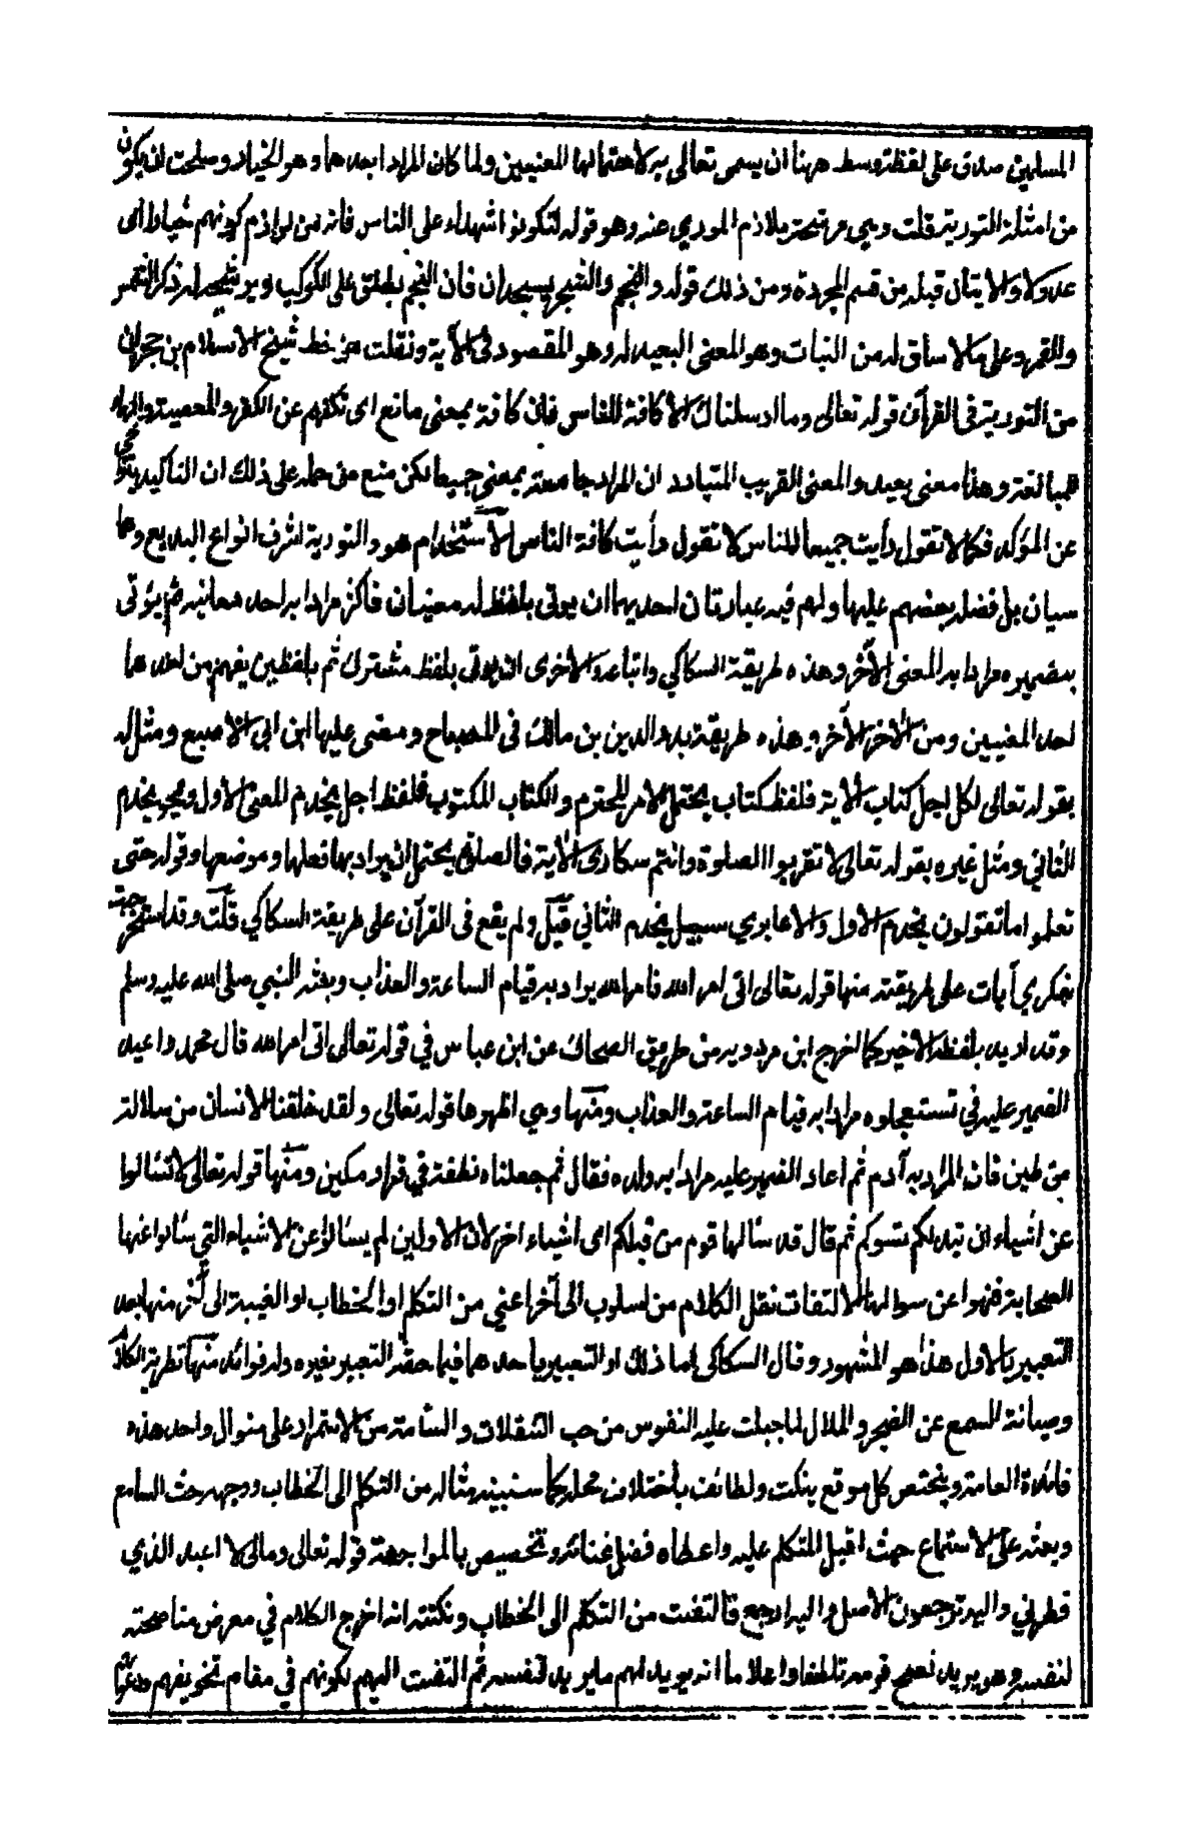 المسلمين صدق على لفظة وسط ههنا ان يسمى تعالى به لاحتمالها المعنيين ولما كان المراد ابعدهما وهو الخيار وصلحت ان يكون
من امثلة التورية قلت وهي مرشحة بلازم المورى عنه وهو قوله لتكونوا شهداء على الناس فانه من لوازم كونهم خيارا اى
عدولا والايتان قبله من قسم المجردة ومن ذلك قوله والنجم والشجر يسجدان فان النجم يطلق على الكوكب ويرشحه له ذكر الشمس
والقمر وعلى مالا ساق له من النبات وهو المعنى البعيد له وهو المقصود فى الآية ونقلت من خط شيخ الاسلام بن حجر ان
من التورية فى القرآن قوله تعالى وما ارسلناك الا كافة للناس فان كافة بمعنى مانع اى تكفهم عن الكفر والمعصية والهاء
للمبالغة وهذا معنى بعيد والمعنى القريب المتبادر ان المراد جامعة بمعنى جميعا لكن منع من حمله على ذلك ان التأكيد يتراخى
عن المؤكد فكما لا تقول رأيت جميعا الناس لا تقول رأيت كافة الناس الاستخدام هو والتورية اشرف انواع البديع وهما
سيان بل فضله بعضهم عليها ولهم فيه عبارتان احديهما ان يوتى بلفظ له معنيان فاكثر مرادا به احد معانيه ثم يؤتى
بضميره مرادا به المعنى الآخر وهذه طريقة السكاكي واتباعه والاخرى ان يوتى بلفظ مشترك ثم بلفظين يفهم من احدهما
احد المعنيين ومن الآخر الآخر وهذه طريقة بدر الدين بن مالك فى المصباح ومشى عليها ابن ابى الاصبع ومثل له
بقوله تعالى لكل اجل كتاب الآية فلفظ كتاب يحتمل الامر المحتوم والكتاب المكتوب فلفظ اجل يخدم المعنى الاول ويمحو يخدم
الثاني ومثل غيره بقوله تعالى لا تقربوا الصلوة وانتم سكارى الآية فالصلوة يحتمل ان يراد بها فعلها وموضعها وقوله حتى
تعلموا ما تقولون يخدم الاول والا عابري سبيل يخدم الثاني قيل ولم يقع فى القرآن على طريقة السكاكي قلت وقد استخرجت
بفكري آيات على طريقته منها قوله تعالى اتى امر الله فامر الله يراد به قيام الساعة والعذاب وبعثة النبي صلى الله عليه وسلم
وقد اريد بلفظه الاخير كما اخرج ابن مردويه من طريق الضحاك عن ابن عباس في قوله تعالى اتى امر الله قال محمد واعيد
الضمير عليه في تستعجلوه مرادا به قيام الساعة والعذاب ومنها وهي اظهرها قوله تعالى ولقد خلقنا الانسان من سلالة
من طين فان المراد به آدم ثم اعاد الضمير عليه مرادا به ولده فقال ثم جعلناه نطفة في قرار مكين ومنها قوله تعالى لا تسئالوا
عن اشياء ان تبد لكم تسوكم ثم قال قد سألها قوم من قبلكم اى اشياء اخر لان الاولين لم يسألوا عن الاشياء التي سألوا عنها
الصحابة فنهوا عن سوالها الالتفات نقل الكلام من اسلوب الى آخر اعني من التكلم او الخطاب او الغيبة الى آخر منها بعد
التعبير بالاول هذا هو المشهور وقال السكاكى اما ذلك او التعبير باحدهما فيما حقه التعبير بغيره وله فوائد منها تطرية الكلام
وصيانة السمع عن الضجر والملال لما جبلت عليه النفوس من حب التنقلات والسآمة من الاستمرار على منوال واحد هذه
فائدة العامة ويختص كل موقع بنكت ولطائف باختلاف محله كما سنبينه مثاله من التكلم الى الخطاب ووجهه حث السامع
وبعثه على الاستماع حيث اقبل المتكلم عليه واعطاه فضل عناية وتخصيص بالمواجهة قوله تعالى ومالى لا اعبد الذي
فطرني واليه ترجعون الاصل واليه ارجع فالتفت من التكلم الى الخطاب ونكتته انه اخرج الكلام في معرض مناصحته
لنفسه وهو يريد نصح قومه تلطفا واعلاما انه يريد لهم ما يريد لنفسه ثم التفت اليهم لكونهم في مقام تخويفهم ودعوتهم